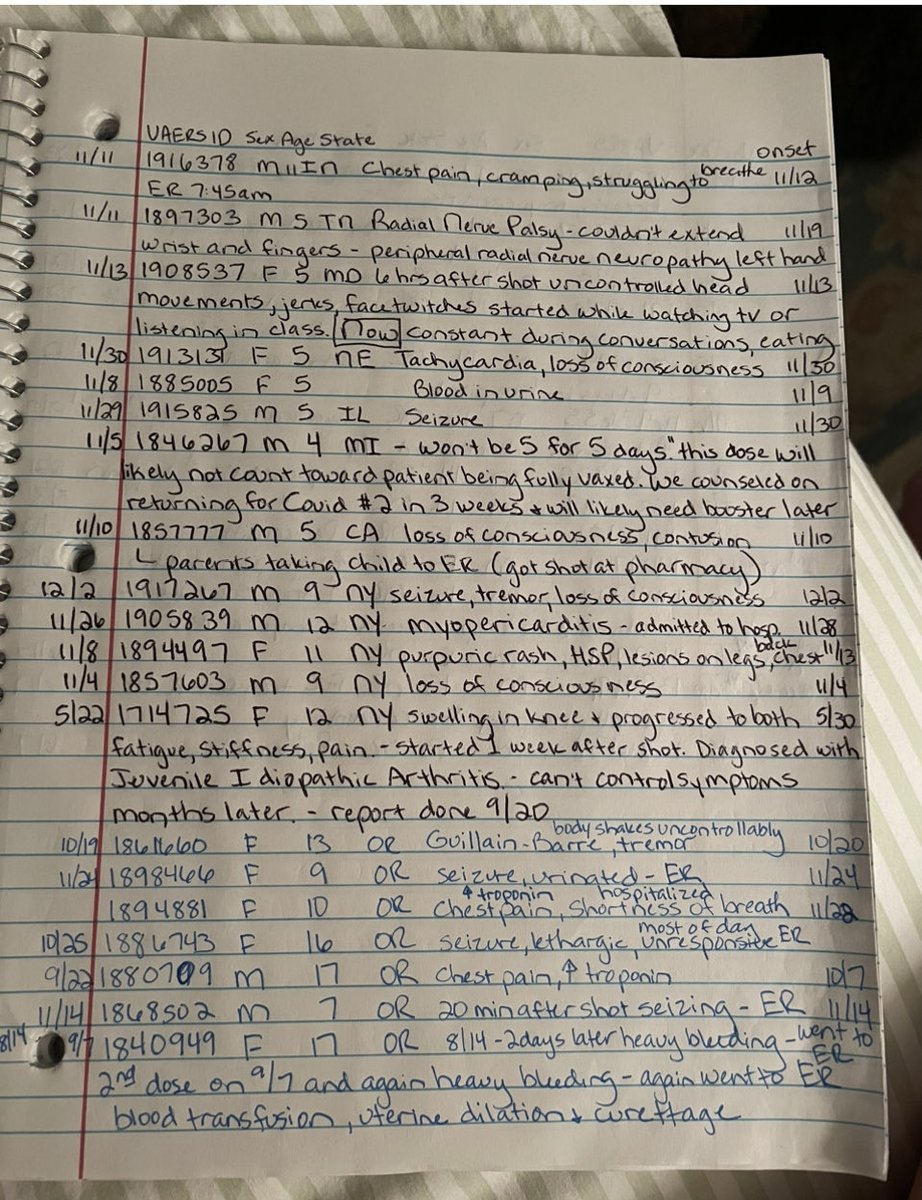 VAERS ID Sex Age State onset
11/11 1916378 M 11 IN Chest pain, cramping, struggling to breathe 11/12
ER 7:45am
11/11 1897303 M 5 TN Radial Nerve Palsy - couldn't extend 11/19
wrist and fingers - peripheral radial nerve neuropathy left hand
11/13 1908537 F 5 MO 6 hrs after shot uncontrolled head 11/13
movements, jerks, face twitches started while watching tv or
listening in class. Now constant during conversations, eating
11/30 1913131 F 5 NE Tachycardia, loss of consciousness 11/30
11/8 1885005 F 5 Blood in urine 11/9
11/29 1915825 M 5 IL Seizure 11/30
11/5 1846267 M 4 MI - won't be 5 for 5 days." this dose will
likely not count toward patient being fully vaxed. We counseled on
returning for Covid #2 in 3 weeks & will likely need booster later
11/10 1857777 M 5 CA loss of consciousness, contusion 11/10
↳ parents taking child to ER (got shot at pharmacy)
12/2 1917267 M 9 NY seizure, tremor, loss of consciousness 12/2
11/26 1905839 M 12 NY myopericarditis - admitted to hosp. 11/28
11/8 1894497 F 11 NY purpuric rash, HSP, lesions on legs, back chest 11/13
11/4 1857603 M 9 NY loss of consciousness 11/4
5/22 1714725 F 12 NY swelling in knee & progressed to both 5/30
fatigue, stiffness, pain. - started 1 week after shot. Diagnosed with
Juvenile Idiopathic Arthritis. - can't control symptoms
months later. - report done 9/20
10/19 1861660 F 13 OR Guillain-Barre, tremor body shakes uncontrollably 10/20
11/24 1898466 F 9 OR seizure, urinated - ER 11/24
1894881 F 10 OR Chest pain, ↑ troponin Shortness of breath hospitalized 11/22
10/25 1886743 F 16 OR seizure, lethargic, unresponsive most of day ER
9/22 1880709 M 17 OR Chest pain, ↑ troponin 10/7
11/14 1868502 M 7 OR 20 min after shot seizing - ER 11/14
8/14 9/7 1840949 F 17 OR 8/14 - 2 days later heavy bleeding - went to ER
2nd dose on 9/7 and again heavy bleeding - again went to ER
blood transfusion, uterine dilation & curettage